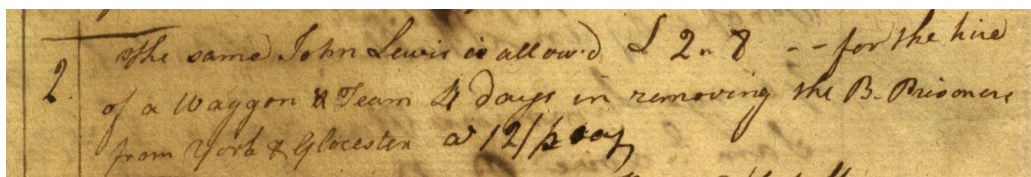 The same John Lewis is allow'd £ 2 " 8 - - for the hire
2. of a Waggon & Team 4 days in removing the B. Prisoners
from York & Glocester at 12/ p day